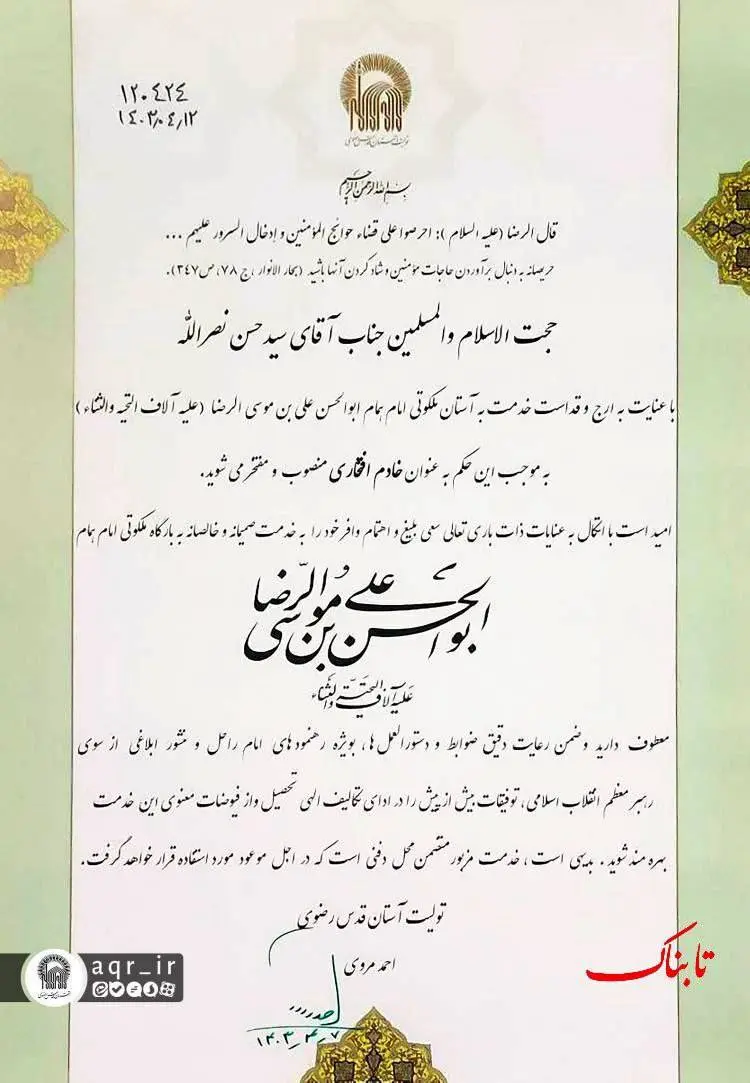 ۱۲۰۴۲۴
۱۴۰۳/۰۴/۱۲
بسم الله الرحمن الرحیم
قال الرضا (علیه السلام): احرصوا علی قضاء حوائج المؤمنین و إدخال السرور علیهم ...
حریصانه به دنبال برآوردن حاجات مؤمنین و شاد کردن آنها باشید (بحار الانوار ،ج ۷۸، ص۳۴۷).
حجت الاسلام والمسلمین جناب آقای سید حسن نصرالله
با عنایت به ارج و قداست خدمت به آستان ملکوتی امام همام ابوالحسن علی بن موسی الرضا (علیه آلاف التحیه والثناء)
به موجب این حکم به عنوان خادم افتخاری منصوب و مفتخر می شوید.
امید است با اتکال به عنایات ذات باری تعالی سعی بلیغ و اهتمام وافر خود را به خدمت صمیمانه و خالصانه به بارگاه ملکوتی امام همام
ابوالحسن علی بن موسی الرضا
علیه آلاف التحیة والثناء
معطوف دارید وضمن رعایت دقیق ضوابط و دستورالعمل ها، بویژه رهنمودهای امام راحل و منشور ابلاغی از سوی
رهبر معظم انقلاب اسلامی، توفیقات بیش از پیش را در ادای تکالیف الهی تحصیل واز فیوضات معنوی این خدمت
بهره مند شوید. بدیهی است، خدمت مزبور متضمن محل دفنی است که در اجل موعود مورد استفاده قرار خواهد گرفت.
تولیت آستان قدس رضوی
احمد مروی
۱۴۰۳/۴/۷
aqr_ir
تابناک